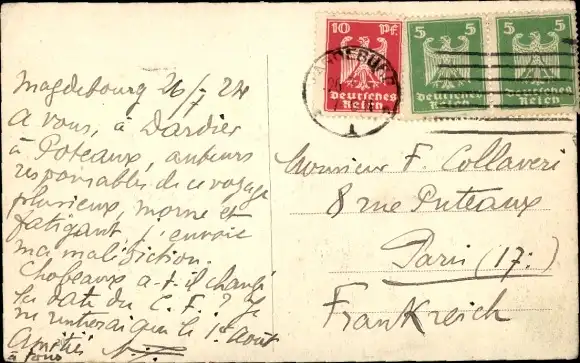 Magdebourg 26/7 24
A vous, à Dardier
à Poteaux, auteurs
responsables de ce voyage
pluvieux, morne et
fatigant j'envoie
ma malédiction.
Chopeaux a-t-il changé
la date du C. F. ? Je
ne rentrerai que le 1er Août
Amitiés
à tous
10 Pf.
Deutsches
Reich
5 5
Deutsches
Reich
5 5
Deutsches
Reich
MAGDEBURG
1
Monsieur F. Collaveri
8 rue Puteaux
Paris (17.)
Frankreich